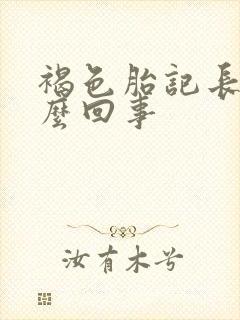 褐色胎記長
麼回事
汝有木兮